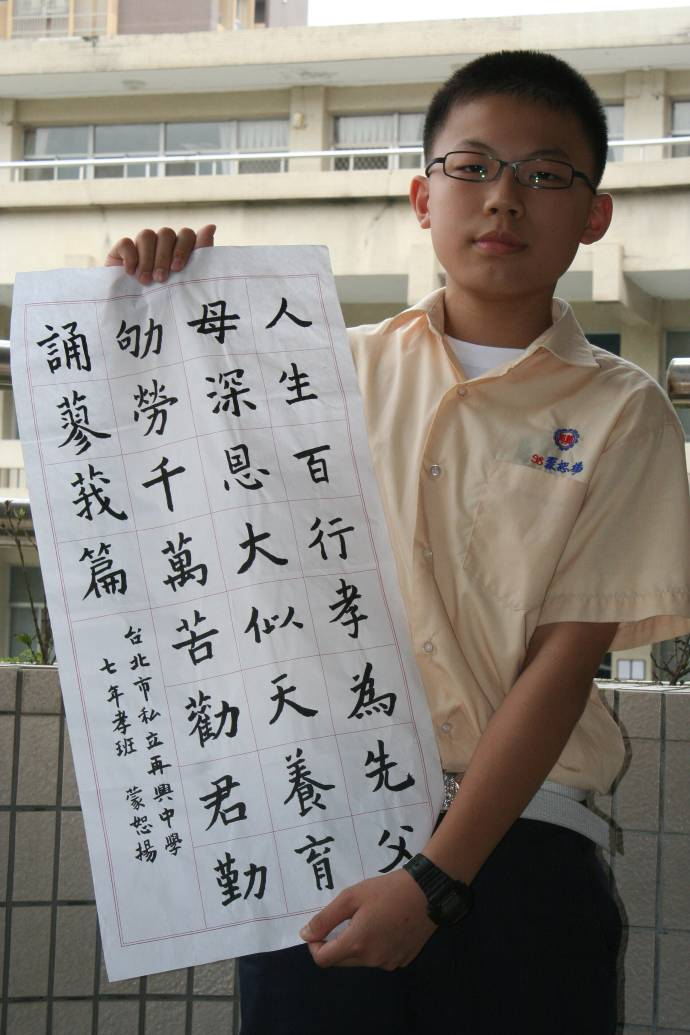 人生百行孝為先父
母深恩大似天養育
劬勞千萬苦勸君勤
誦蓼莪篇
台北市私立再興中學
七年孝班 蒙恕揚
98 蒙恕揚